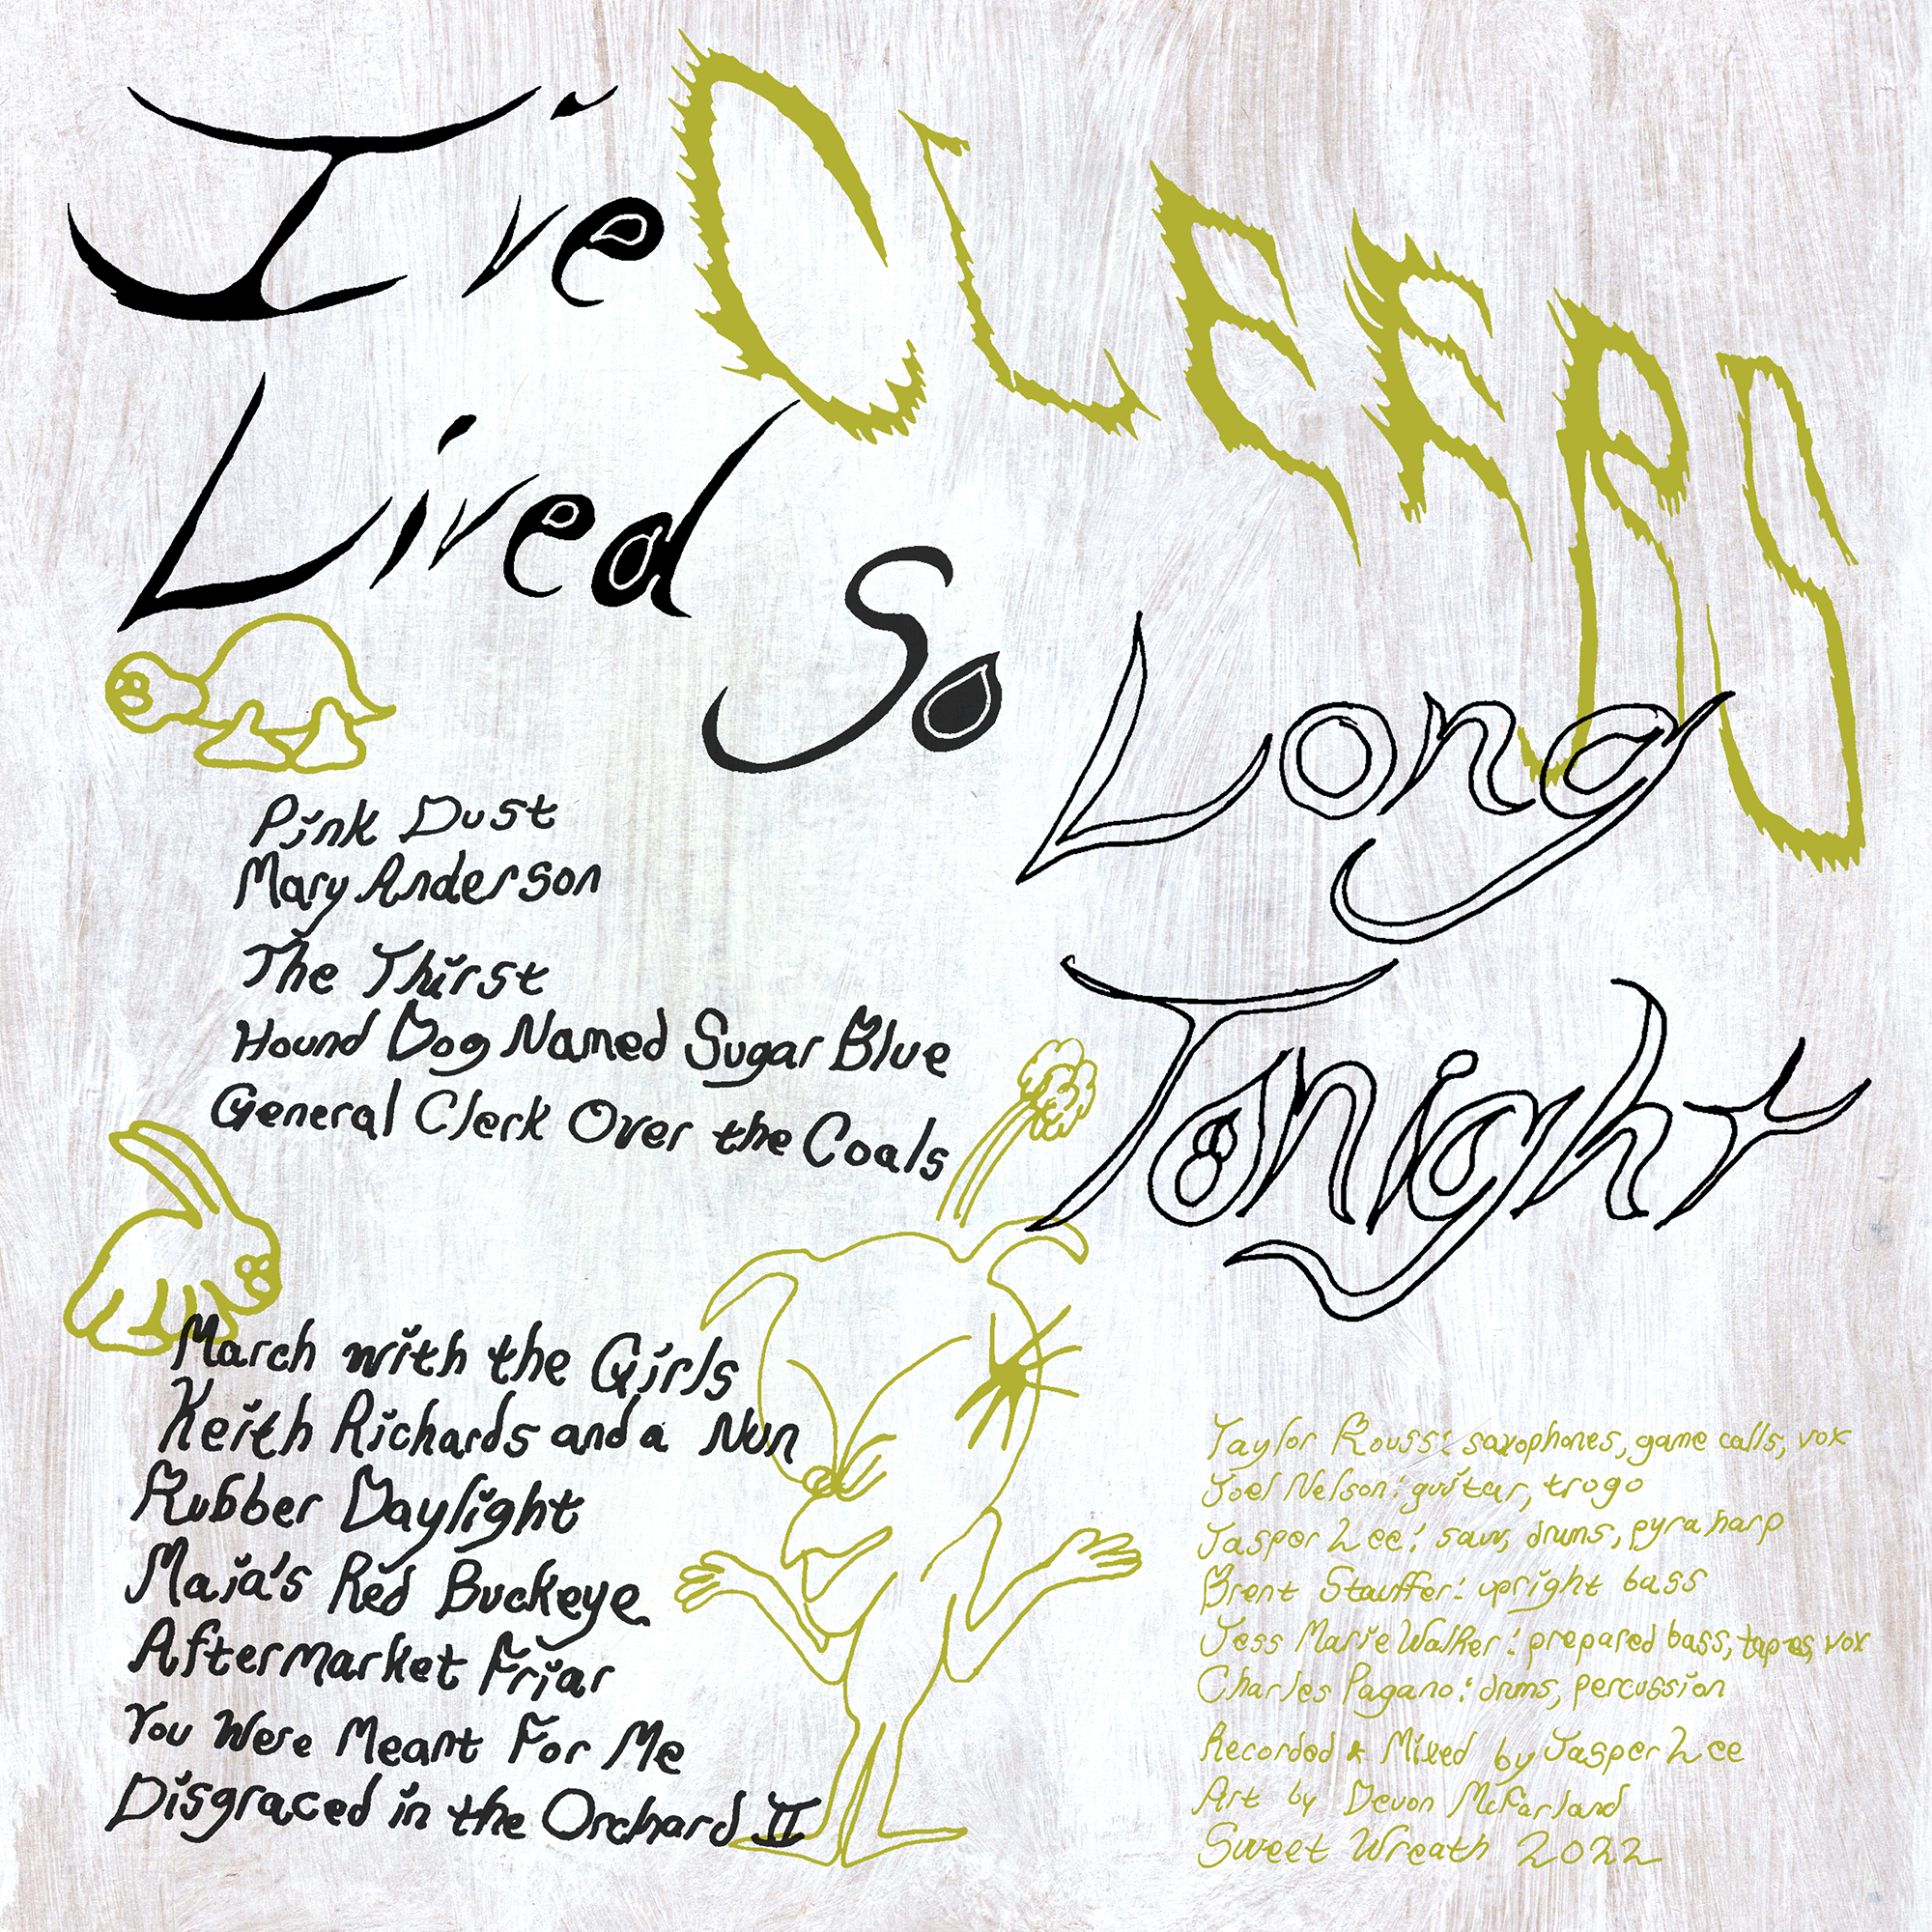 I've
CLEERS
Lived
So
Long
Tonight
Pink Dust
Mary Anderson
The Thirst
Hound Dog Named Sugar Blue
General Clerk Over the Coals
March with the Girls
Keith Richards and a Nun
Rubber Daylight
Maia's Red Buckeye
Aftermarket Friar
You Were Meant For Me
Disgraced in the Orchard II
Taylor Rouss: saxophones, game calls, vox
Joel Nelson: guitar, trogo
Jasper Lee: saw, drums, pyra harp
Brent Stauffer: upright bass
Jess Marie Walker: prepared bass, tapes, vox
Charles Pagano: drums, percussion
Recorded & Mixed by Jasper Lee
Art by Devon McFarland
Sweet Wreath 2022